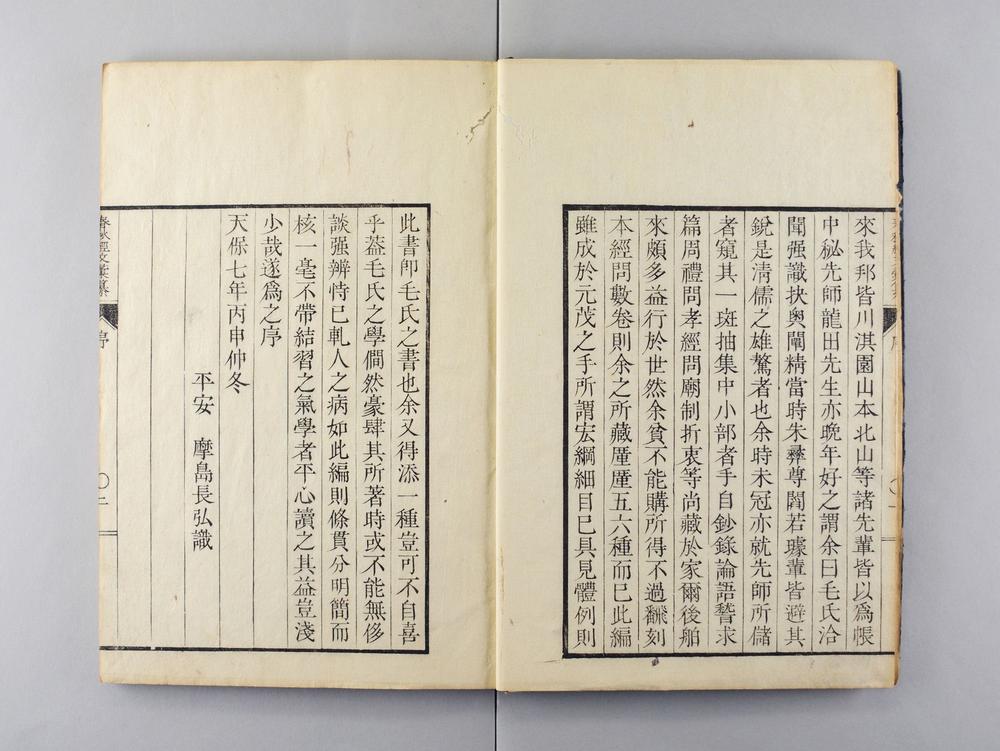 來我邦皆川淇園山本北山等諸先輩皆以爲帳
中秘先師龍田先生亦晚年好之謂余曰毛氏洽
聞强識抉奧闡精當時朱彝尊閻若璩輩皆避其
銳是淸儒之雄驁者也余時未冠亦就先師所儲
者窺其一斑抽集中小部者手自鈔錄論語稽求
篇周禮問孝經問廟制折衷等尚藏於家爾後舶
來頗多益行於世然余貧不能購所得不過翻刻
本經問數卷則余之所藏厪厪五六種而已此編
雖成於元茂之手所謂宏綱細目已具見體例則
此書卽毛氏之書也余又得添一種豈可不自喜
乎葢毛氏之學僩然豪肆其所著時或不能無侈
談强辨恃已軋人之病如此編則條貫分明簡而
核一毫不帶結習之氣學者平心讀之其益豈淺
少哉遂爲之序
天保七年丙申仲冬
平安 摩島長弘識
春秋經文彙纂
序
二